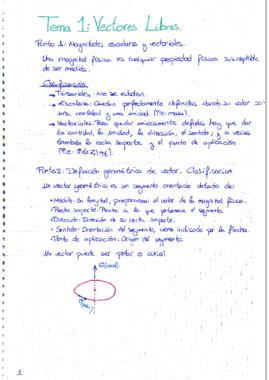 Tema 1: Vectores Libres.
Punto 1: Magnitudes escalares y vectoriales.
Una magnitud física es cualquier propiedad física susceptible
de ser medida.
Clasificación
→ Tensoriales: No se estudian.
→ Escalares: Quedan perfectamente definidas dando su valor con
una cantidad y una unidad. (P.e: masa).
→ Vectoriales: Para quedar unívocamente definidas hay que dar
la cantidad, la unidad, la dirección, el sentido, y a veces
también la recta soporte y el punto de aplicación
Punto 2: Definición geométrica de vector. Clasificación
Un vector geométrico es un segmento orientado dotado de:
• Módulo: Su longitud, proporcional al valor de la magnitud física.
• Recta soporte: Recta a la que pertenece el segmento.
• Dirección: Dirección de su recta soporte.
• Sentido: Orientación del segmento, viene indicado por la flecha.
• Punto de aplicación: Origen del segmento.
Un vector puede ser polar o axial.
(axial)
1